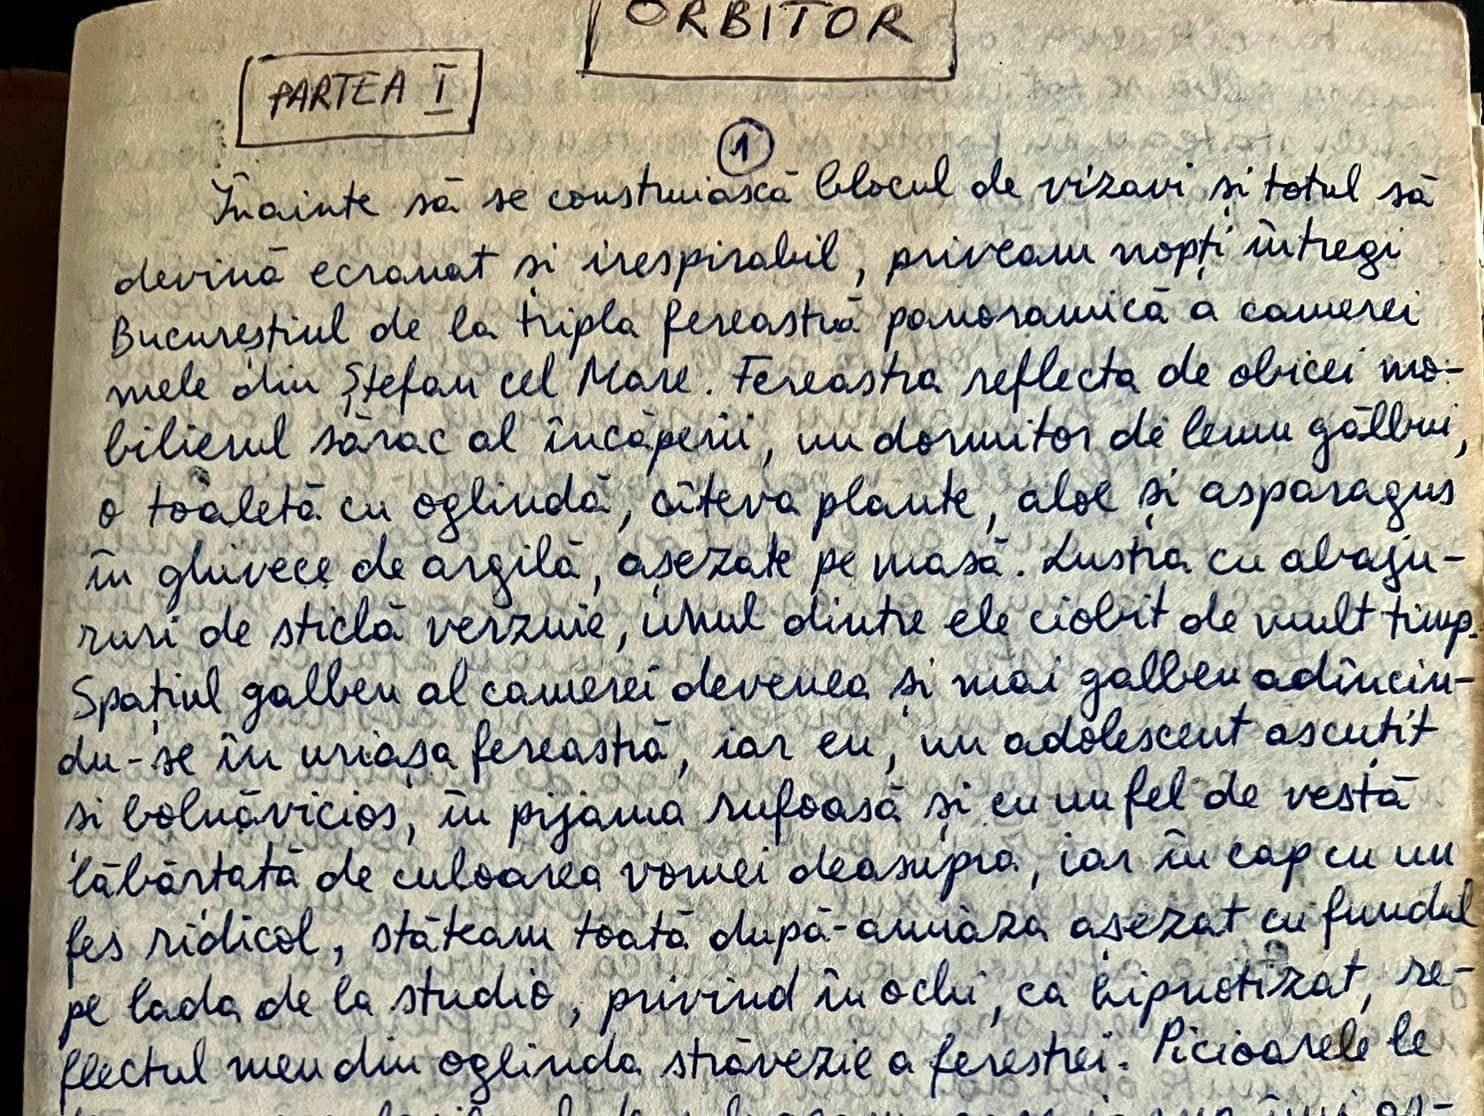 ORBITOR
PARTEA I
1
Înainte să se construiască blocul de vizavi și totul să
devină ecranat și irespirabil, priveam nopți întregi
Bucureștiul de la tripla fereastră panoramică a camerei
mele din Ștefan cel Mare. Fereastra reflecta de obicei mo-
bilierul sărac al încăperii, un dormitor de lemn gălbui,
o toaletă cu oglindă, cîteva plante, aloe și asparagus
în ghivece de argilă, așezate pe masă. Lustra cu abaju-
ruri de sticlă verzuie, unul dintre ele ciobit de mult timp.
Spațiul galben al camerei devenea și mai galben adîncin-
du-se în uriașa fereastră, iar eu, un adolescent ascuțit
si bolnăvicios, în pijama rufoasă și cu un fel de vestă
lăbărtată de culoarea vomei deasupra, iar în cap cu un
fes ridicol, stăteam toată după-amiaza așezat cu fundul
pe lada de la studio, privind în ochi, ca hipnotizat, re-
flectul meu din oglinda străvezie a ferestrei. Picioarele le